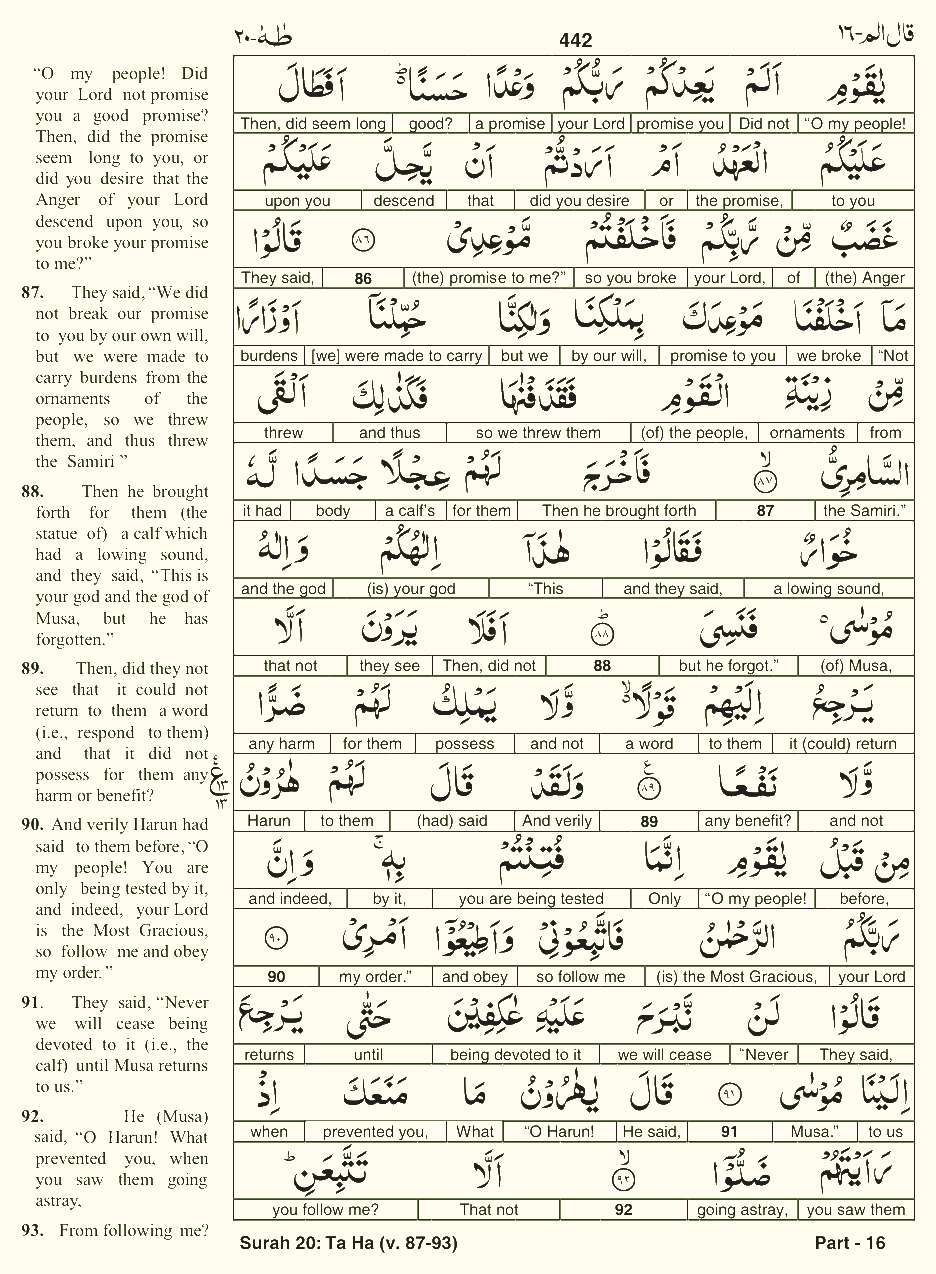 طٰهٰ-٢٠
442
قال الم-١٦
“O my people! Did
your Lord not promise
you a good promise?
Then, did the promise
seem long to you, or
did you desire that the
Anger of your Lord
descend upon you, so
you broke your promise
to me?”
87. They said, “We did
not break our promise
to you by our own will,
but we were made to
carry burdens from the
ornaments of the
people, so we threw
them, and thus threw
the Samiri ”
88. Then he brought
forth for them (the
statue of) a calf which
had a lowing sound,
and they said, “This is
your god and the god of
Musa, but he has
forgotten.”
89. Then, did they not
see that it could not
return to them a word
(i.e., respond to them)
and that it did not
possess for them any
harm or benefit?
90. And verily Harun had
said to them before, “O
my people! You are
only being tested by it,
and indeed, your Lord
is the Most Gracious,
so follow me and obey
my order.”
91. They said, “Never
we will cease being
devoted to it (i.e., the
calf) until Musa returns
to us.”
92. He (Musa)
said, “O Harun! What
prevented you, when
you saw them going
astray,
93. From following me?
ع
١٣
١٣
يٰقَوْمِ اَلَمْ يَعِدْكُمْ رَبُّكُمْ وَعْدًا حَسَنًا ؕ اَفَطَالَ
Then, did seem long good? a promise your Lord promise you Did not “O my people!
عَلَيْكُمُ الْعَهْدُ اَمْ اَرَدْتُّمْ اَنْ يَّحِلَّ عَلَيْكُمْ
upon you descend that did you desire or the promise, to you
غَضَبٌ مِّنْ رَّبِّكُمْ فَاَخْلَفْتُمْ مَّوْعِدِىْ ٨٦ قَالُوْا
They said, 86 (the) promise to me?” so you broke your Lord, of (the) Anger
مَاۤ اَخْلَفْنَا مَوْعِدَكَ بِمَلْكِنَا وَلٰكِنَّا حُمِّلْنَاۤ اَوْزَارًا
burdens [we] were made to carry but we by our will, promise to you we broke “Not
مِّنْ زِيْنَةِ الْقَوْمِ فَقَذَفْنٰهَا فَكَذٰلِكَ اَلْقَى
threw and thus so we threw them (of) the people, ornaments from
السَّامِرِىُّ ۙ ٨٧ فَاَخْرَجَ لَهُمْ عِجْلًا جَسَدًا لَّهٗ
it had body a calf’s for them Then he brought forth 87 the Samiri.”
خُوَارٌ فَقَالُوْا هٰذَاۤ اِلٰهُكُمْ وَاِلٰهُ
and the god (is) your god “This and they said, a lowing sound,
مُوْسٰى ۥ فَنَسِىَ ؕ ٨٨ اَفَلَا يَرَوْنَ اَلَّا
that not they see Then, did not 88 but he forgot.” (of) Musa,
يَرْجِعُ اِلَيْهِمْ قَوْلًا ۙ وَّلَا يَمْلِكُ لَهُمْ ضَرًّا
any harm for them possess and not a word to them it (could) return
وَّلَا نَفْعًا ع ٨٩ وَلَقَدْ قَالَ لَهُمْ هٰرُوْنُ
Harun to them (had) said And verily 89 any benefit? and not
مِنْ قَبْلُ يٰقَوْمِ اِنَّمَا فُتِنْتُمْ بِهٖ ۚ وَاِنَّ
and indeed, by it, you are being tested Only “O my people! before,
رَبَّكُمُ الرَّحْمٰنُ فَاتَّبِعُوْنِىْ وَاَطِيْعُوْۤا اَمْرِىْ ٩٠
90 my order.” and obey so follow me (is) the Most Gracious, your Lord
قَالُوْا لَنْ نَّبْرَحَ عَلَيْهِ عٰكِفِيْنَ حَتّٰى يَرْجِعَ
returns until being devoted to it we will cease “Never They said,
اِلَيْنَا مُوْسٰى ٩١ قَالَ يٰهٰرُوْنُ مَا مَنَعَكَ اِذْ
when prevented you, What “O Harun! He said, 91 Musa.” to us
رَاَيْتَهُمْ ضَلُّوْۤا ۙ ٩٢ اَلَّا تَتَّبِعَنِ ؕ
you follow me? That not 92 going astray, you saw them
Surah 20: Ta Ha (v. 87-93)
Part - 16